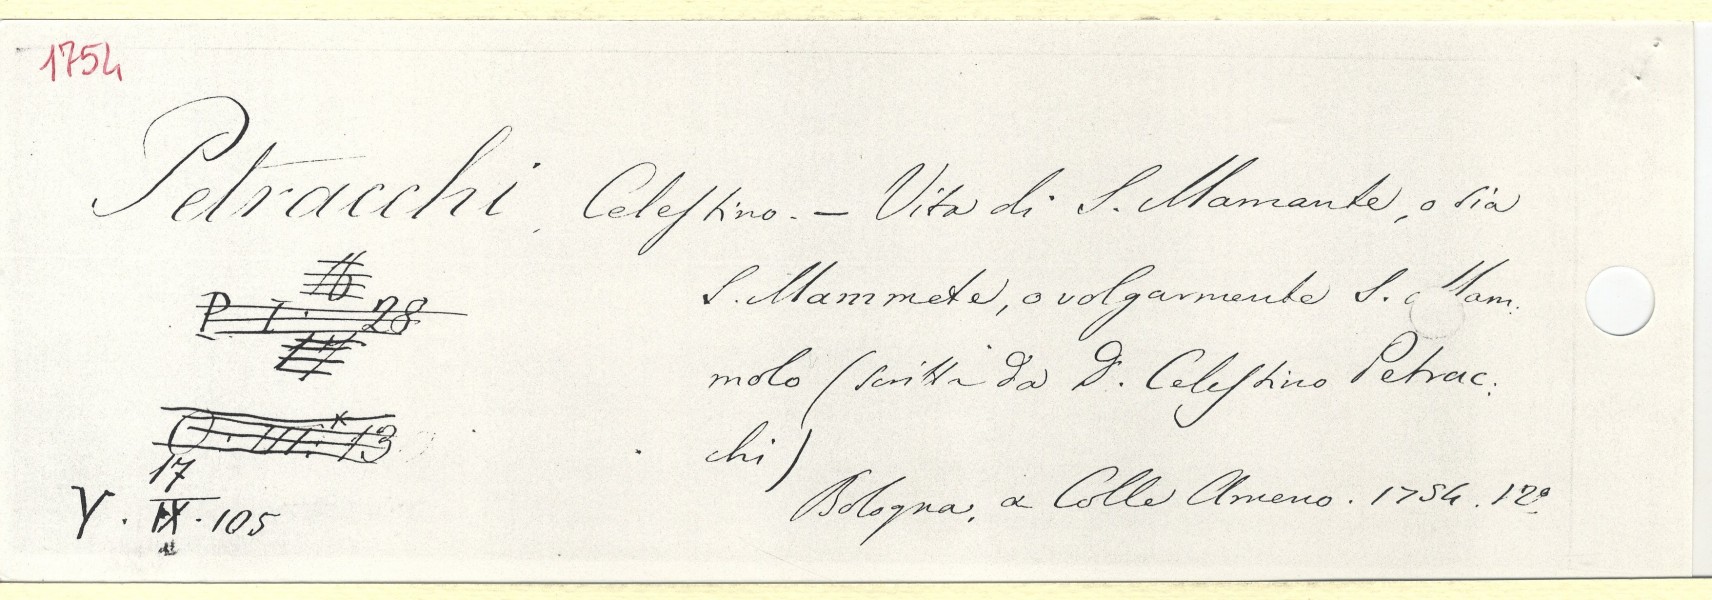 1754
Petracchi, Celestino. – Vita di S. Mamante, o sia
S. Mammete, o volgarmente S. Mam.
molo (scritta da D. Celestino Petrac.
chi)
Bologna, a Colle Ameno. 1754. 12º
P I. 28
O. III. 13
17
V. IX. 105